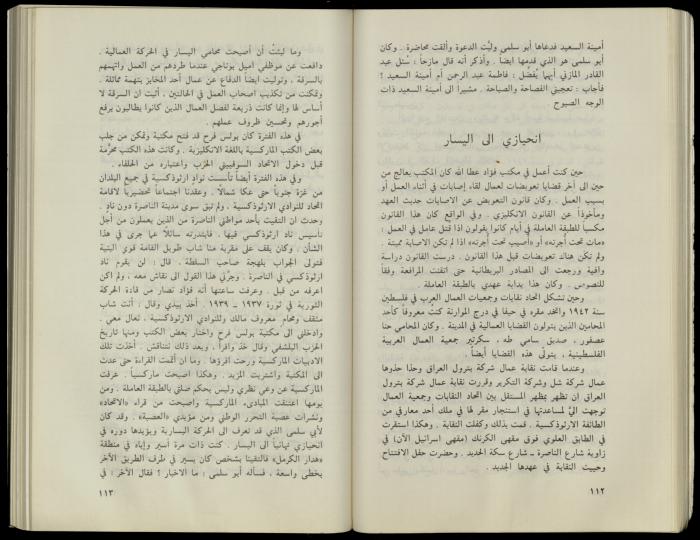 أمينة السعيد فدعاها أبو سلمى ولبّت الدعوة وألقت محاضرة . وكان
أبو سلمى هو الذي قدمها أيضاً . وأذكر أنه قال مازحاً : سُئل عبد
القادر المازني أيهما يُفضل : فاطمة عبد الرحمن أم أمينة السعيد ؟
فأجاب : تعجبني الفصاحة والصباحة . مشيراً الى أمينة السعيد ذات
الوجه الصبوح .
انحيازي الى اليسار
حين كنت أعمل في مكتب فؤاد عطا الله كان المكتب يعالج من
حين الى آخر قضايا تعويضات لعمال لقاء إصابات في أثناء العمل أو
بسبب العمل . وكان قانون التعويض عن الاصابات جديد العهد
ومأخوذاً عن القانون الانكليزي . وفي الواقع كان هذا القانون
مكسباً للطبقة العاملة في أيام كانوا يقولون اذا قتل عامل في العمل :
«مات تحت أُجرته» أو «أصيب تحت أُجرته» اذا لم تكن الاصابة مميتة .
ولم تكن هناك تعويضات قبل هذا القانون . درست القانون دراسة
وافية ورجعت الى المصادر البريطانية حتى اتقنت المرافعة وفقاً
للنصوص . وكان هذا بداية عهدي بالطبقة العاملة .
وحين تشكل اتحاد نقابات وجمعيات العمال العرب في فلسطين
سنة ١٩٤٢ واتخذ مقره في حيفا في درج الموارنة كنت معروفاً كأحد
المحامين الذين يتولون القضايا العمالية في المدينة . وكان المحامي حنا
عصفور ، صديق سامي طه ، سكرتير جمعية العمال العربية
الفلسطينية ، يتولى هذه القضايا أيضاً .
وعندما قامت نقابة عمال شركة بترول العراق وحذا حذوها
عمال شركة شل وشركة التكرير وقررت نقابة عمال شركة بترول
العراق ان تظهر بمظهر المستقل بين اتحاد النقابات وجمعية العمال
توجهت اليّ لمساعدتها في استئجار مقر لها في ملك أحد معارفي من
الطائفة الارثوذكسية . قمت بذلك وكفلت النقابة . وهكذا استقرت
في الطابق العلوي فوق مقهى الكرنك (مقهى اسرائيل الآن) في
زاوية شارع الناصرة ــ شارع سكة الحديد . وحضرت حفل الافتتاح
وحييت النقابة في عهدها الجديد .
١١٢
وما لبثتُ أن أصبحت محامي اليسار في الحركة العمالية .
دافعت عن موظفي اميل بوتاجي عندما طردهم من العمل واتهمهم
بالسرقة ، وتوليت ايضاً الدفاع عن عمال أحد المخابز بتهمة مماثلة .
وتمكنت من تكذيب اصحاب العمل في الحالتين ، أثبت ان السرقة لا
أساس لها وإنما كانت ذريعة لفصل العمال الذين كانوا يطالبون برفع
أجورهم وتحسين ظروف عملهم .
في هذه الفترة كان بولس فرح قد فتح مكتبة وتمكن من جلب
بعض الكتب الماركسية باللغة الانكليزية . وكانت هذه الكتب محرّمة
قبل دخول الاتحاد السوفييتي الحرب واعتباره من الحلفاء .
وفي هذه الفترة أيضاً تأسست نوادٍ ارثوذكسية في جميع البلدان
من غزة جنوباً حتى عكا شمالاً . وعقدنا اجتماعاً تحضيرياً لاقامة
اتحاد للنوادي الارثوذكسية . ولم تبق سوى مدينة الناصرة دون نادٍ .
وحدث ان التقيت بأحد مواطني الناصرة من الذين يعملون من أجل
تأسيس نادٍ ارثوذكسي فيها . فابتدرته سائلاً عما جرى في هذا
الشأن ؛ وكان يقف على مقربة منّا شاب طويل القامة قوي البنية
فتولى الجواب بلهجة صاحب السلطة . قال : لن يقوم نادٍ
ارثوذكسي في الناصرة . وجرّني هذا القول الى نقاش معه ، ولم اكن
اعرفه من قبل . وعرفت ساعتها أنه فؤاد نصار من قادة الحركة
الثورية في ثورة ١٩٣٧ ــ ١٩٣٩ . أخذ بيدي وقال : أنت شاب
مثقف ومحام معروف مالك وللنوادي الارثوذكسية ، تعال معي .
وادخلني الى مكتبة بولس فرح واختار بعض الكتب ومنها تاريخ
الحزب البلشفي وقال خذ واقرأ ، وبعد ذلك نتناقش . أخذت تلك
الادبيات الماركسية ورحت اقرؤها . وما ان أتممت القراءة حتى عدت
الى المكتبة واشتريت المزيد . وهكذا اصبحت ماركسياً . عرفت
الماركسية عن وعي نظري وليس بحكم صلتي بالطبقة العاملة . ومن
يومها اعتنقت المبادىء الماركسية واصبحت من قراء «الاتحاد»
ونشرات عصبة التحرر الوطني ومن مؤيدي «العصبة» . وقد كان
لأبي سلمى الذي قد تعرف الى الحركة اليسارية ويؤيدها دوره في
انحيازي نهائياً الى اليسار . كنت ذات مرة أسير وإياه في منطقة
«هدار الكرمل» فالتقينا بشخص كان يسير في طرف الطريق الآخر
بخطى واسعة ، فسأله أبو سلمى : ما الاخبار ؟ فقال الآخر : في
١١٣